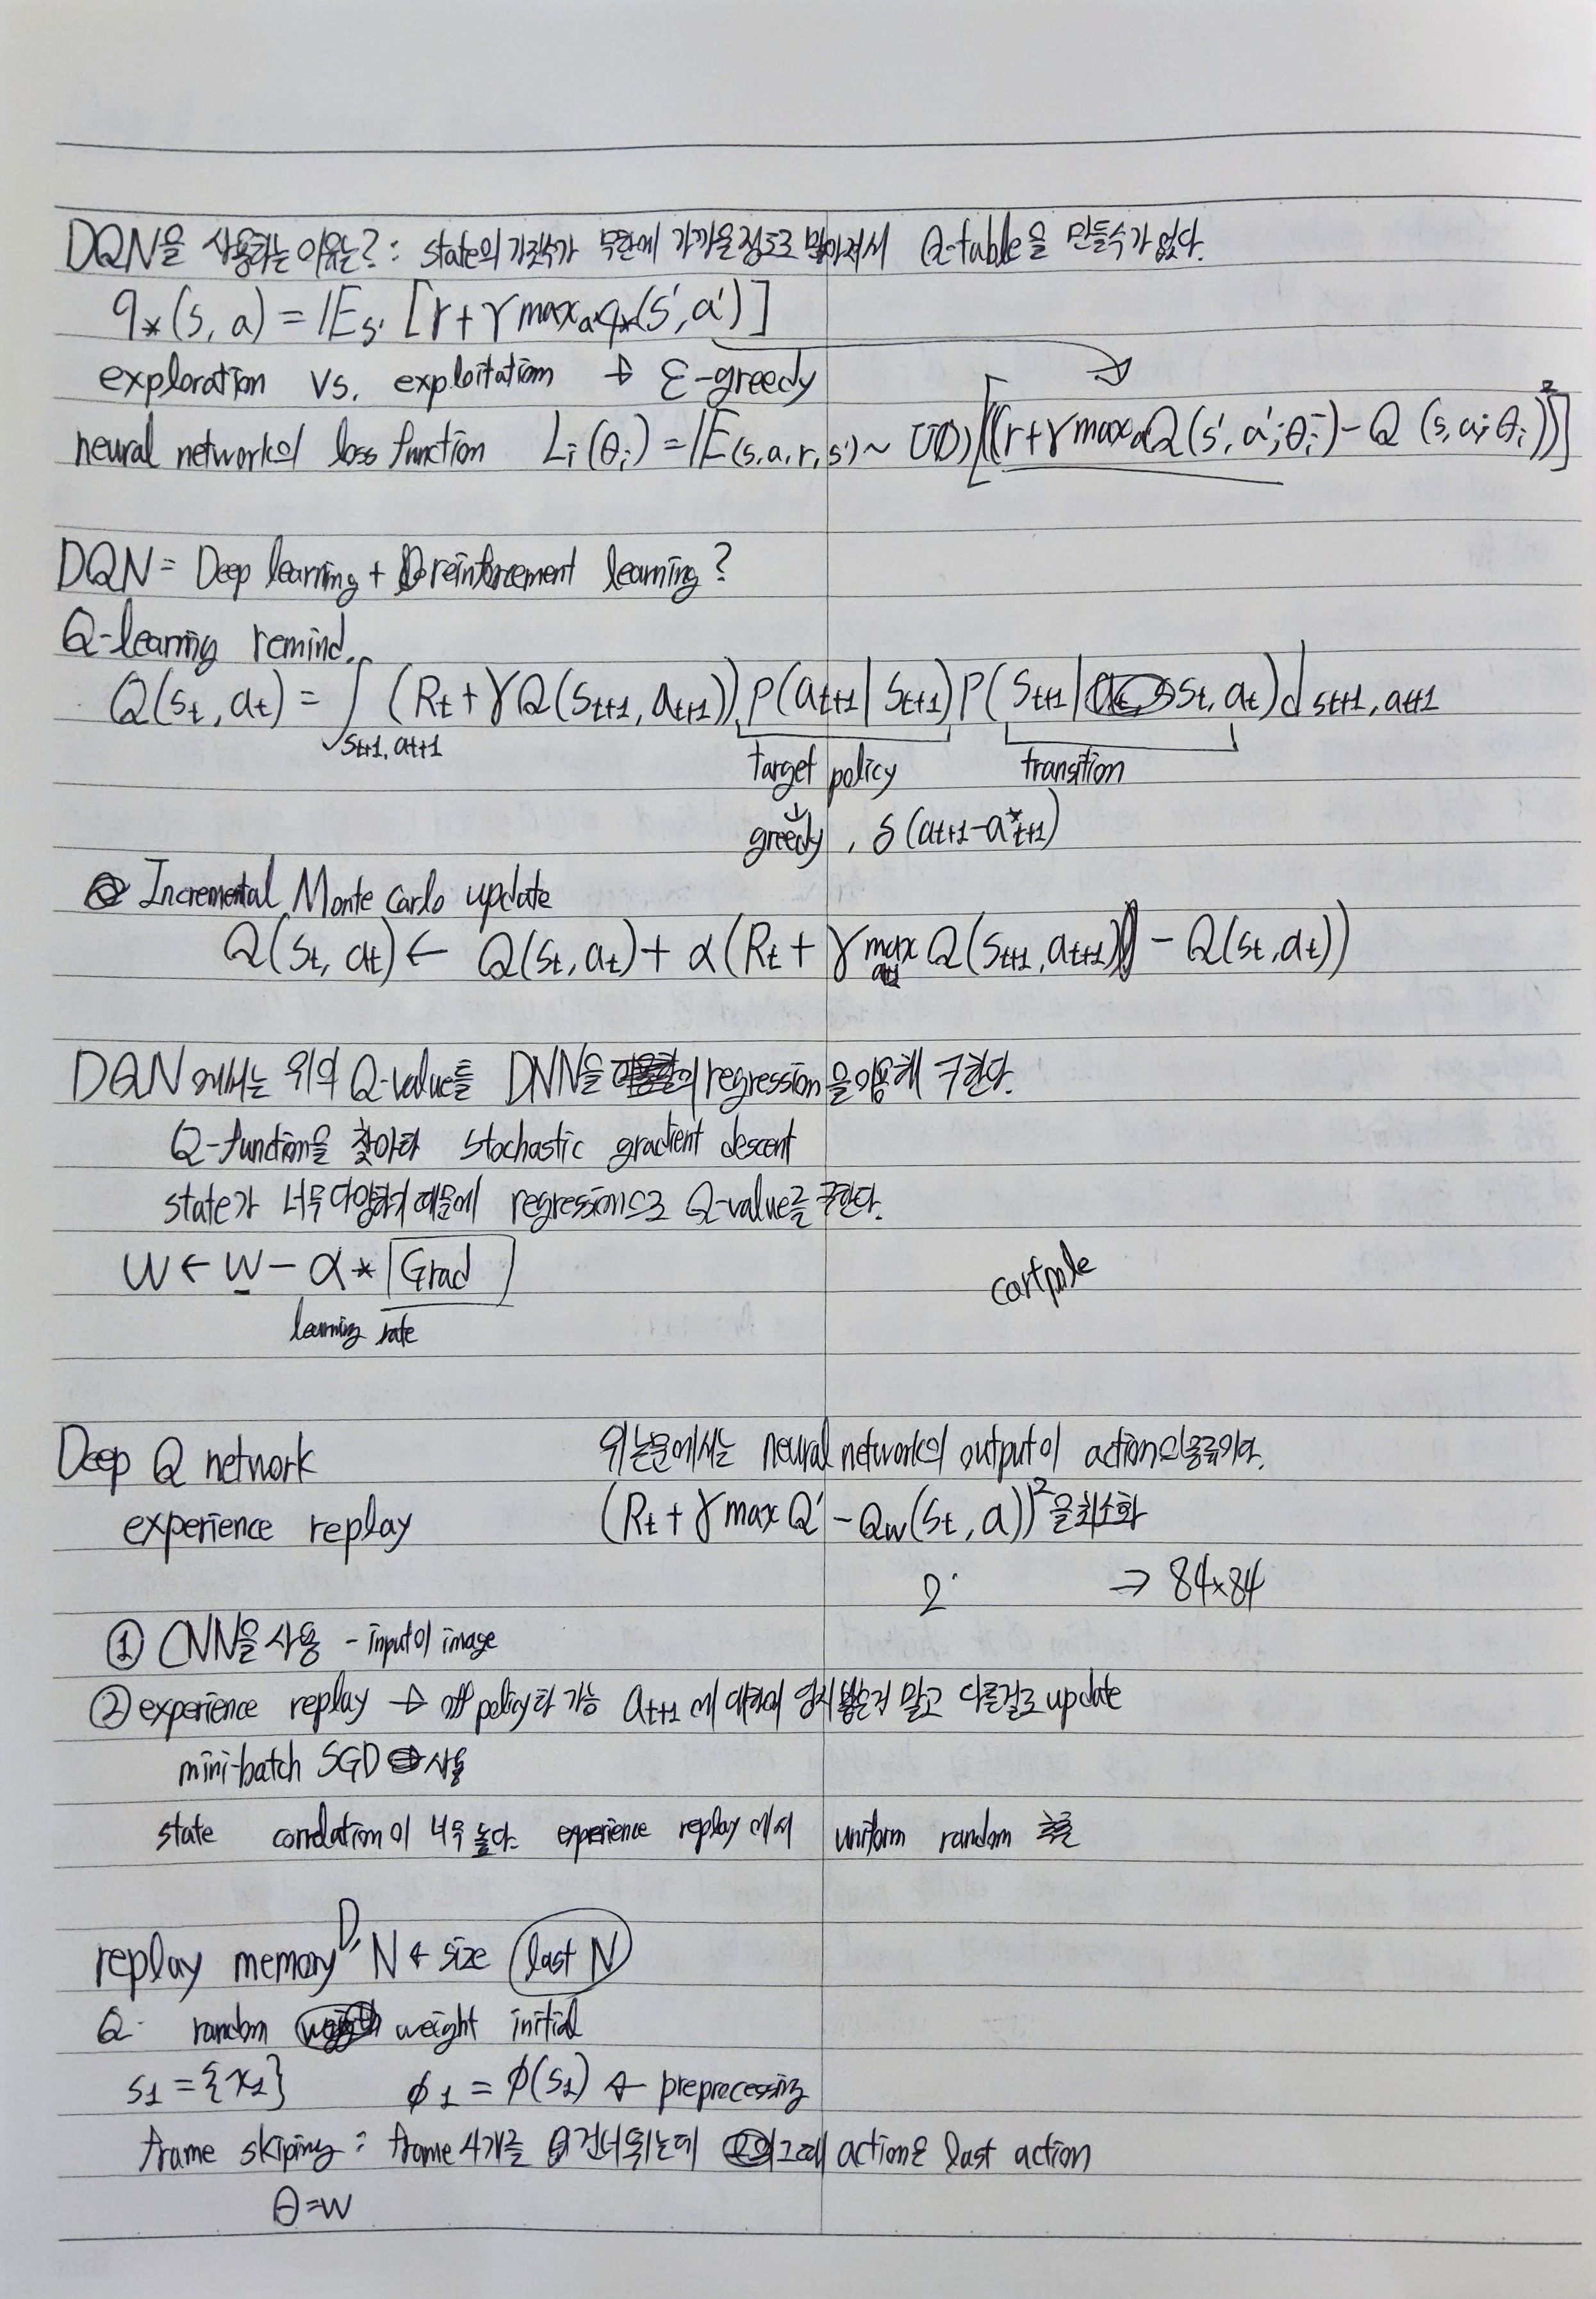 DQN을 사용하는 이유는? : state의 가짓수가 무한에 가까울정도로 많아져서 Q-table을 만들수가 없다.
q*(s, a) = 𝔼s' [r + γ maxa' q*(s', a')]
exploration vs. exploitation → ε-greedy
neural network의 loss function Li(θi) = 𝔼(s,a,r,s')~U(D)[((r+γ maxa Q(s', a'; θi⁻) - Q(s, a; θi))²]
DQN = Deep learning + reinforcement learning?
Q-learning remind.
Q(st, at) = ∫st+1, at+1 (Rt + γQ(st+1, at+1)) P(at+1 | st+1) P(st+1 | st, at) d st+1, at+1
target policy transition
↓
greedy, δ(at+1 - a*t+1)
Incremental Monte Carlo update
Q(st, at) ← Q(st, at) + α(Rt + γ max at+1 Q(st+1, at+1) - Q(st, at))
DQN에서는 위의 Q-value를 DNN을 의 regression을 이용해 구한다.
Q-function을 찾아라 stochastic gradient descent
state가 너무 다양하기 때문에 regression으로 Q-value를 구한다.
w ← w - α * Grad
cartpole
learning rate
Deep Q network 위 논문에서는 neural network의 output이 action의 종류이다.
experience replay (Rt + γ max Q' - Qw(st, a))² 을 최소화
2 ⇒ 84×84
① CNN을 사용 - input이 image
② experience replay → off policy라 가능 at+1에 대하여 말고 다른걸로 update
mini-batch SGD 사용
state correlation이 너무 높다. experience replay에서 uniform random 추출
replay memory D, N ← size last N
Q random weight initial
s1 = {x1} φ1 = φ(s1) ← preprecessing
frame skiping : frame 4개를 건너뛰는데 그때 action은 last action
θ=w